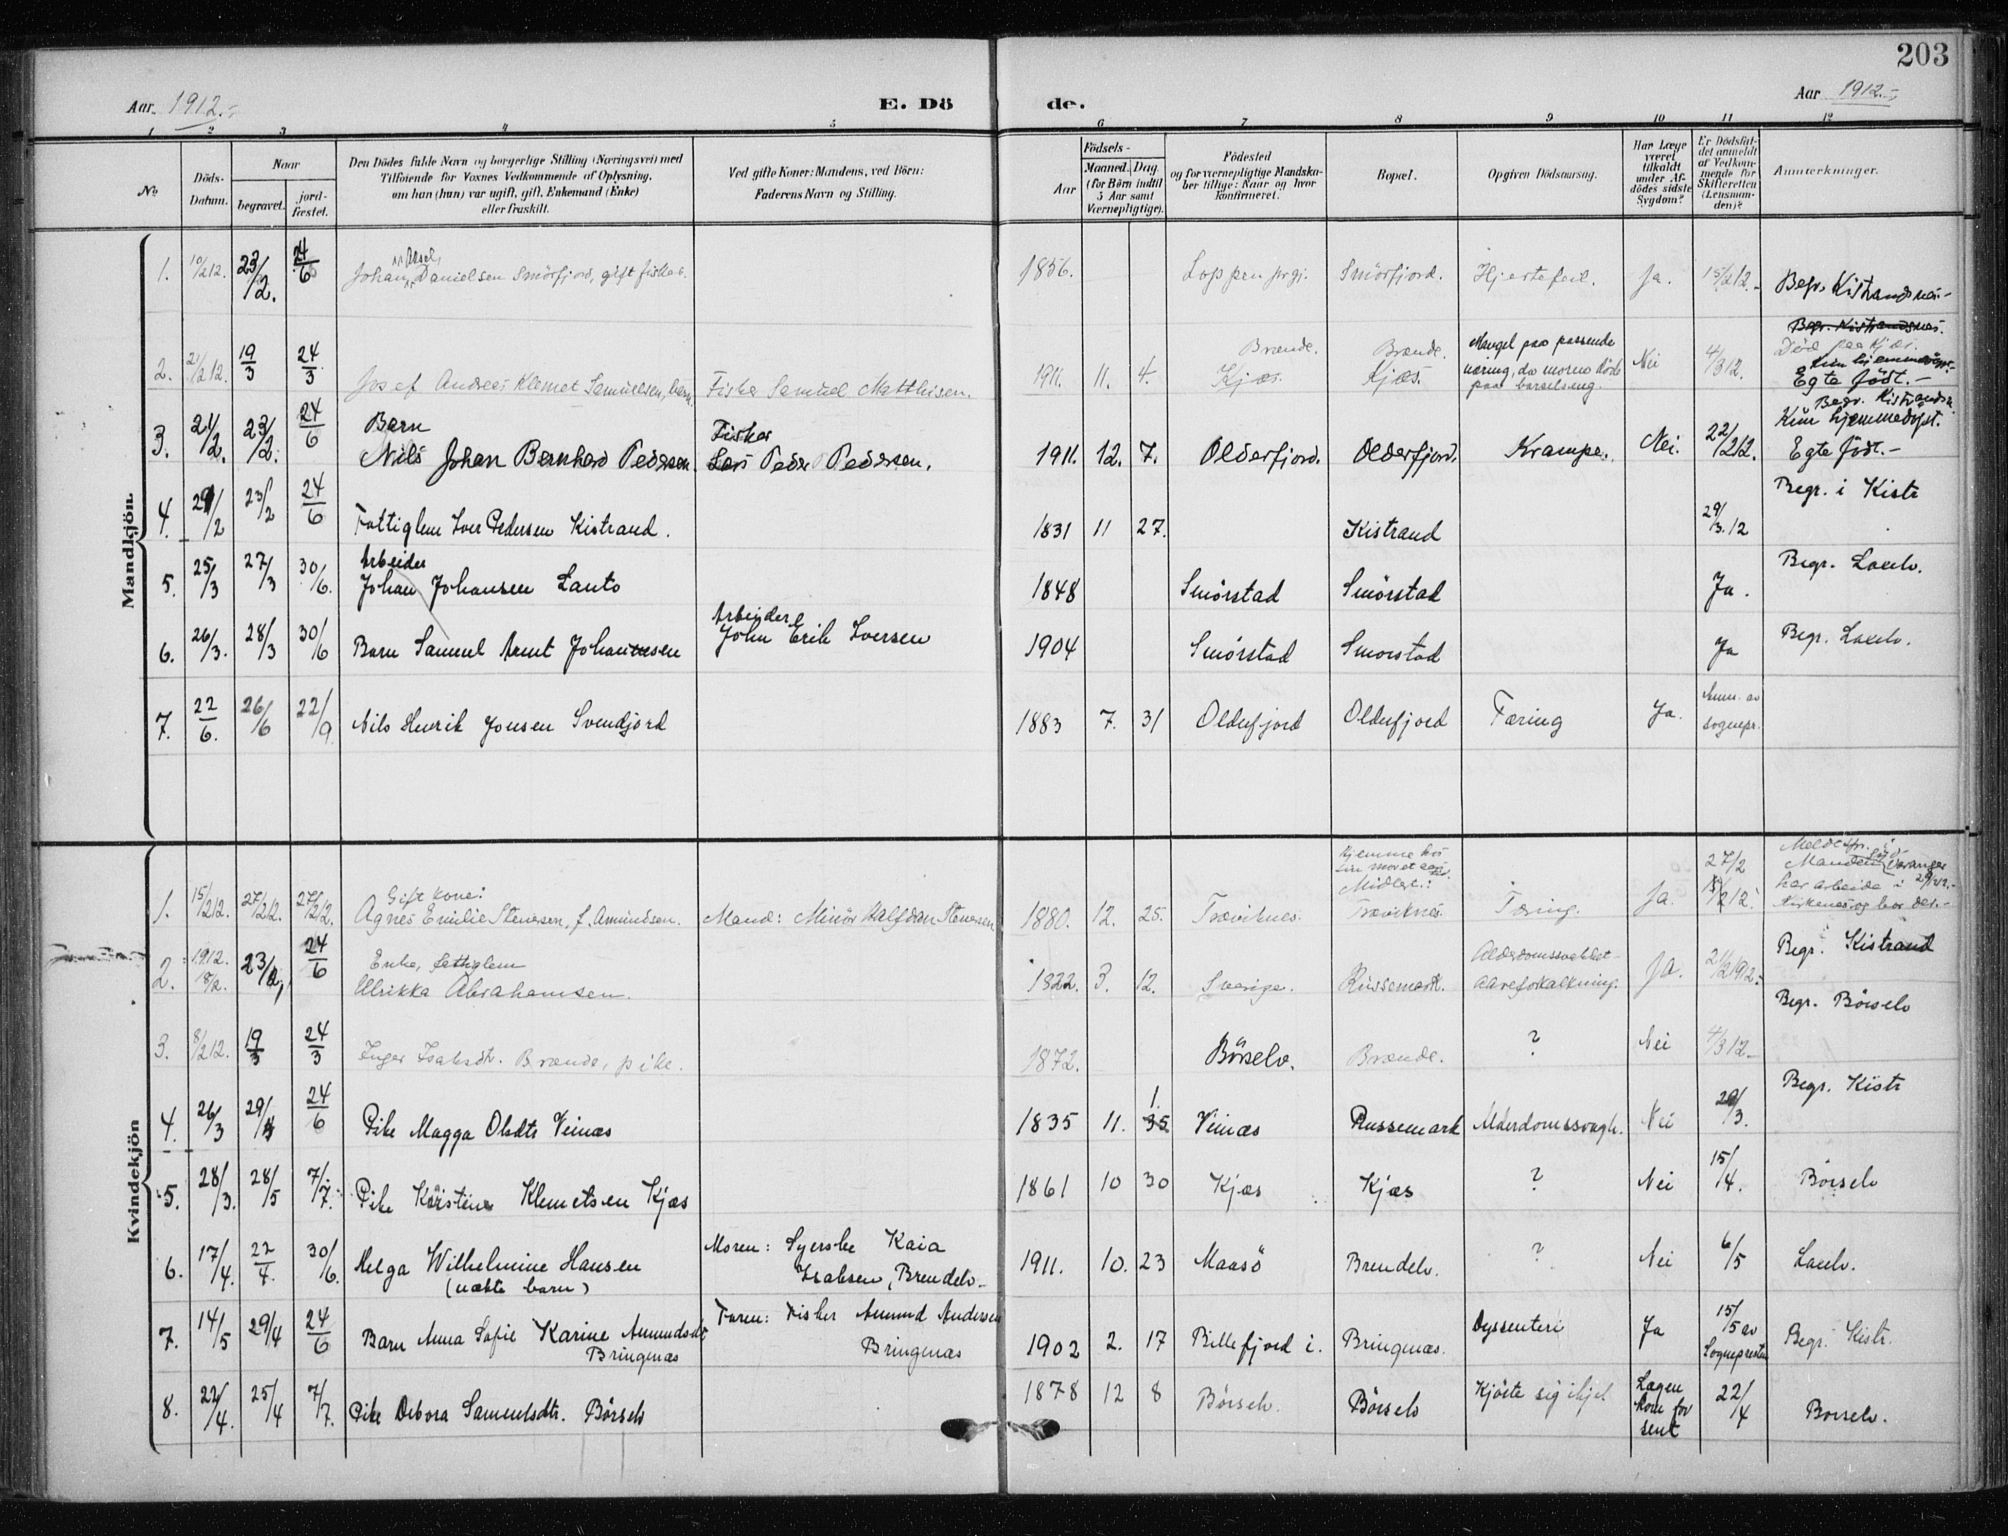 203
Aar 1912.-
E. Dö de.
Aar 1912.-
1 2 3 4 5 6 7 8 9 10 11 12
No
Döds-Datum.
Naar
begravet.
jord-fæstet.
Den Dödes fulde Navn og borgerlige Stilling (Næringsvei) med
Tilföiende for Voxnes Vedkommende af Oplysning,
om han (hun) var ugift, gift, Enkemand (Enke)
eller fraskilt.
Ved gifte Koner: Mandens, ved Börn:
Faderens Navn og Stilling.
Födsels-
Aar
Maaned. Dag.
(for Börn indtil
5 Aar samt
Værnepligtige).
Födested
og for værnepligtige Mandska-
ber tillige: Naar og hvor
konfirmeret.
Bopæl.
Opgiven Dödsaarsag.
Har Læge
været
tilkaldt
under Af-
dödes sidste
Sygdom?
Er Dödsfal-
det anmeldt
af Vedkom-
mende for
Skifteretten
(Lensman-
den)?
Anmærkninger.
Mandkjön.
1. 10/2 12. 23/2. 24/6 Johan Aksel Danielsen Smörfjord, gift fisker. 1856. Loppen prgj. Smörfjord. Hjertefeil. Ja. 15/2 12.- Begr. Kistrandnes.-
2. 21/2 12. 19/3 24/3 Josef Andreas Klemet Samuelsen, barn. Fisker Samuel Matthisen. 1911. 11. 4. Brænde. Kjæs. Brænde. Kjæs. Mangel paa passende
næring, da moren döde
paa barselseng. Nei 4/3 12. Begr. Kistrandsnes.
Död paa Kjæs.
Kun hjemmedöpt.
Egte födt.-
3. 21/2. 23/2. 24/6 Barn
Nils Johan Bernhard Pedersen Fisker
Lars Peder Pedersen. 1911. 12. 7. Olderfjord. Olderfjord. Krampe. Nei. 22/2 12. Begr. Kistrands.
Kun hjemmedöpt.
Egte födt.-
4. 29/2 23/2 24/6 Fattiglem Iver Pedersen Kistrand. 1831 11 27. Kistrand 29/3. 12 Begr. i Kistr
5. 25/3 27/3 30/6. Arbeider
Johan Johansen Lanto 1848 Smörstad Smörstad Ja. Begr. Laxelv.
6. 26/3. 28/3 30/6 Barn Samuel Arnt Johannesen Arbeider
John Erik Iversen 1904 Smörstad Smorstad Ja Begr. Laxelv.
7. 22/6. 26/6 22/9. Nils Henrik Jonsen Svendjord 1883 7. 31 Olderfjord Olderfjord Tæring Ja. Anm. av
sognepr.
Kvindekjön
1. 15/2 12. 27/2 12. 27/2 12. Gift kone:
Agnes Emilie Stenersen, f. Amundsen. Mand: Minör Halfdan Stenersen 1880. 12. 25. Træviknes. Hjemme hos
Midlert.:
Træviknes. Tæring. Ja. 27/2
Manden
har arbeide i
Kirkenes og bor der.-
2. 1912. 18/2. 23/2, 24/6 Enke, fattiglem
Ulrikka Abrahamsen. 1822. 3. 12. Sverige. Russemark. Alderdomssvakhet-
Aareforkalkning. Ja. 21/2 1912. Begr. Kistrand
3. 8/2 12. 19/3 24/3 Inger Isaksdt. Brænde, pike. 1872. Börselv. Brænde. ? Nei 4/3 12.- Begr. Börselv
4. 26/3 29/4 24/6 Pike Magga Olsdtr Veinæs 1835 11. 1. 25. Veinæs Russemark Alderdomssvagh. Nei 29/3. Begr. Kistr
5. 28/3. 28/5 7/7. Pike Kirstine Klemetsen Kjæs 1861 10 30 Kjæs Kjæs ? Nei 15/4. Börselv
6. 17/4. 22/4. 30/6. Helga Wilhelmine Hansen
(uækte barn) Moren: Syerske Kaia
Isaksen, Brendelv. 1911. 10. 23 Maasö Brendelv. ? Nei 6/5 Laxelv.
7. 14/5 29/4 24/6 Barn Anna Sofie Karine Amundsdt
Bringnæs Faren: Fisker Amund Andersen
Bringnæs 1902 2. 17 Billefjord i. Bringnæs. Dyssenteri Ja 15/5 av
Sognepresten Begr. Kistr.
8. 22/4. 25/4 7/7. Pike Debora Samuelsdtr. Börselv 1878 12 8 Börselv. Börselv Kjöste sig ihjel. Lægen
kom for
sent 22/4 Borselv.